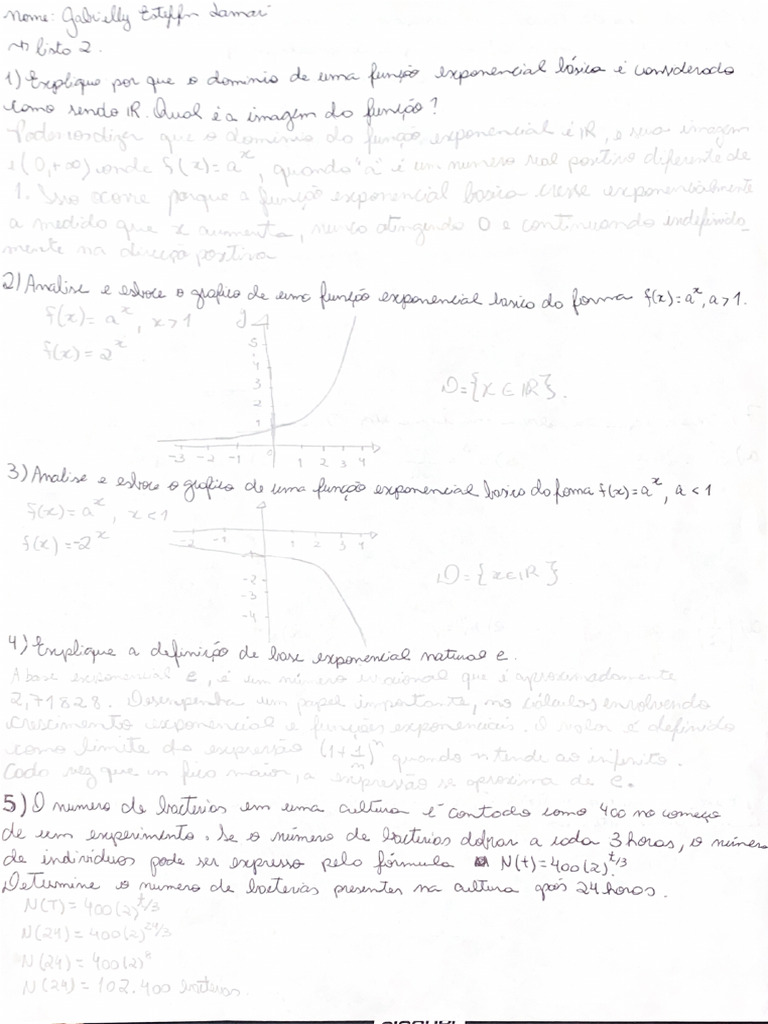 Nome: Gabrielly Esteffn Lamari
→ lista 2.
1) Explique por que o dominio de uma função exponencial básica é considerado
como sendo IR. Qual é a imagem da função?
Podemos dizer que o dominio da função exponencial é IR, e sua imagem
é (0,+∞) onde f(x)=aˣ, quando "a" é um numero real positivo diferente de
1. Isso ocorre porque a função exponencial basica cresce exponencialmente
a medida que x aumenta, nunca atingindo 0 e continuando indefinida-
mente na direção positiva
2) Analise e esboce o grafico de uma função exponencial basica da forma f(x)=aˣ, a>1.
f(x)=aˣ, x>1
f(x)=2ˣ
y
5
4
3
2
1
-3 -2 -1 0 1 2 3 4
D={x∈IR}.
3) Analise e esboce o grafico de uma função exponencial basica da forma f(x)=aˣ, a<1
f(x)=aˣ, x<1
f(x)=-2ˣ
-2 -1 1 2 3 4
-2
-3
-4
D={x∈IR}
4) Explique a definição de base exponencial natural e.
A base exponencial e, é um número irracional que é aproximadamente
2,71828. Desempenha um papel importante, no cálculos envolvendo
crescimento exponencial e funções exponenciais. O valor é definido
como limite da expressão (1+1/n)ⁿ quando n tende ao infinito.
Cada vez que n fica maior, a expressão se aproxima de e.
5) O numero de bacterias em uma cultura é contado como 400 no começo
de um experimento. Se o número de bacterias dobrar a cada 3 horas, o número
de individuos pode ser expresso pela fórmula N(t)=400(2)^t/3.
Determine o numero de bacterias presentes na cultura após 24 horas.
N(T)=400(2)^t/3
N(24)=400(2)^24/3
N(24)=400(2)⁸
N(24)=102.400 bacterias.